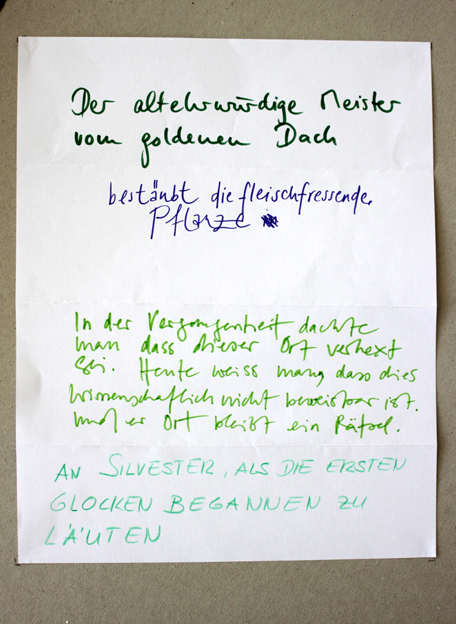 Der altehrwürdige Meister
vom goldenen Dach
bestäubt die fleischfressende
Pflanze
In der Vergangenheit dachte
man dass dieser Ort verhext
sei. Heute weiss man, dass dies
wissenschaftlich nicht beweisbar ist.
Und er Ort bleibt ein Rätsel.
AN SILVESTER, ALS DIE ERSTEN
GLOCKEN BEGANNEN ZU
LÄUTEN